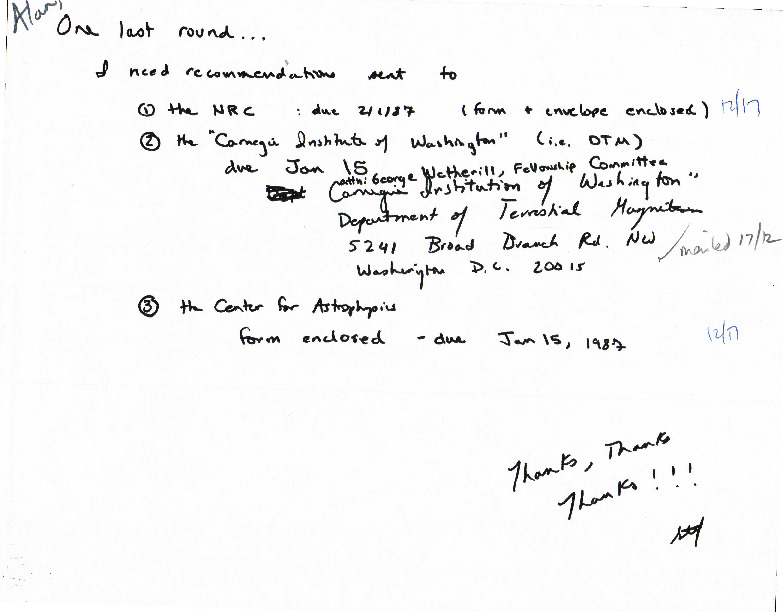 Alan,
One last round...
I need recommendations sent to
① the NRC : due 2/1/87 (form + envelope enclosed) 12/17
② the "Carnegie Institute of Washington" (i.e. DTM)
due Jan 15
attn: George Wetherill, Fellowship Committee
Carnegie Institution of Washington"
Department of Terrestial Magnetism
5241 Broad Branch Rd. NW
mailed 17/12
Washington D.C. 20015
③ the Center for Astrophysics
form enclosed - due Jan 15, 1987
12/17
Thanks, Thanks
Thanks!!!